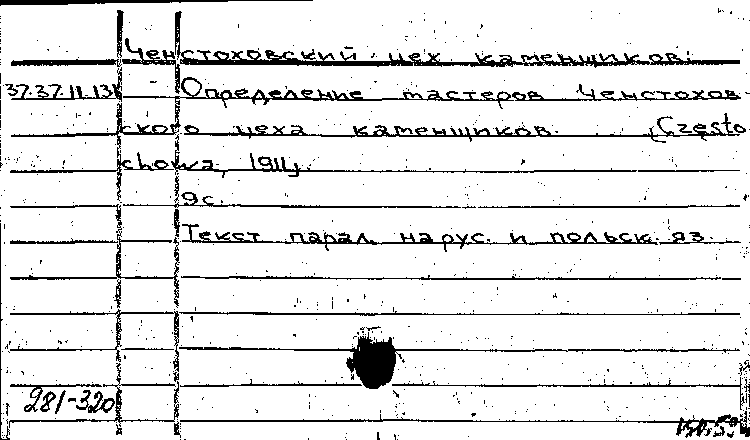 Ченстоховский цех каменщиков.
37.37.11.131 - Определение мастеров Ченстохов-
ского цеха каменщиков. [Często
chowa, 1911].
9 с.
Текст парал. на рус. и польск. яз.
281-320